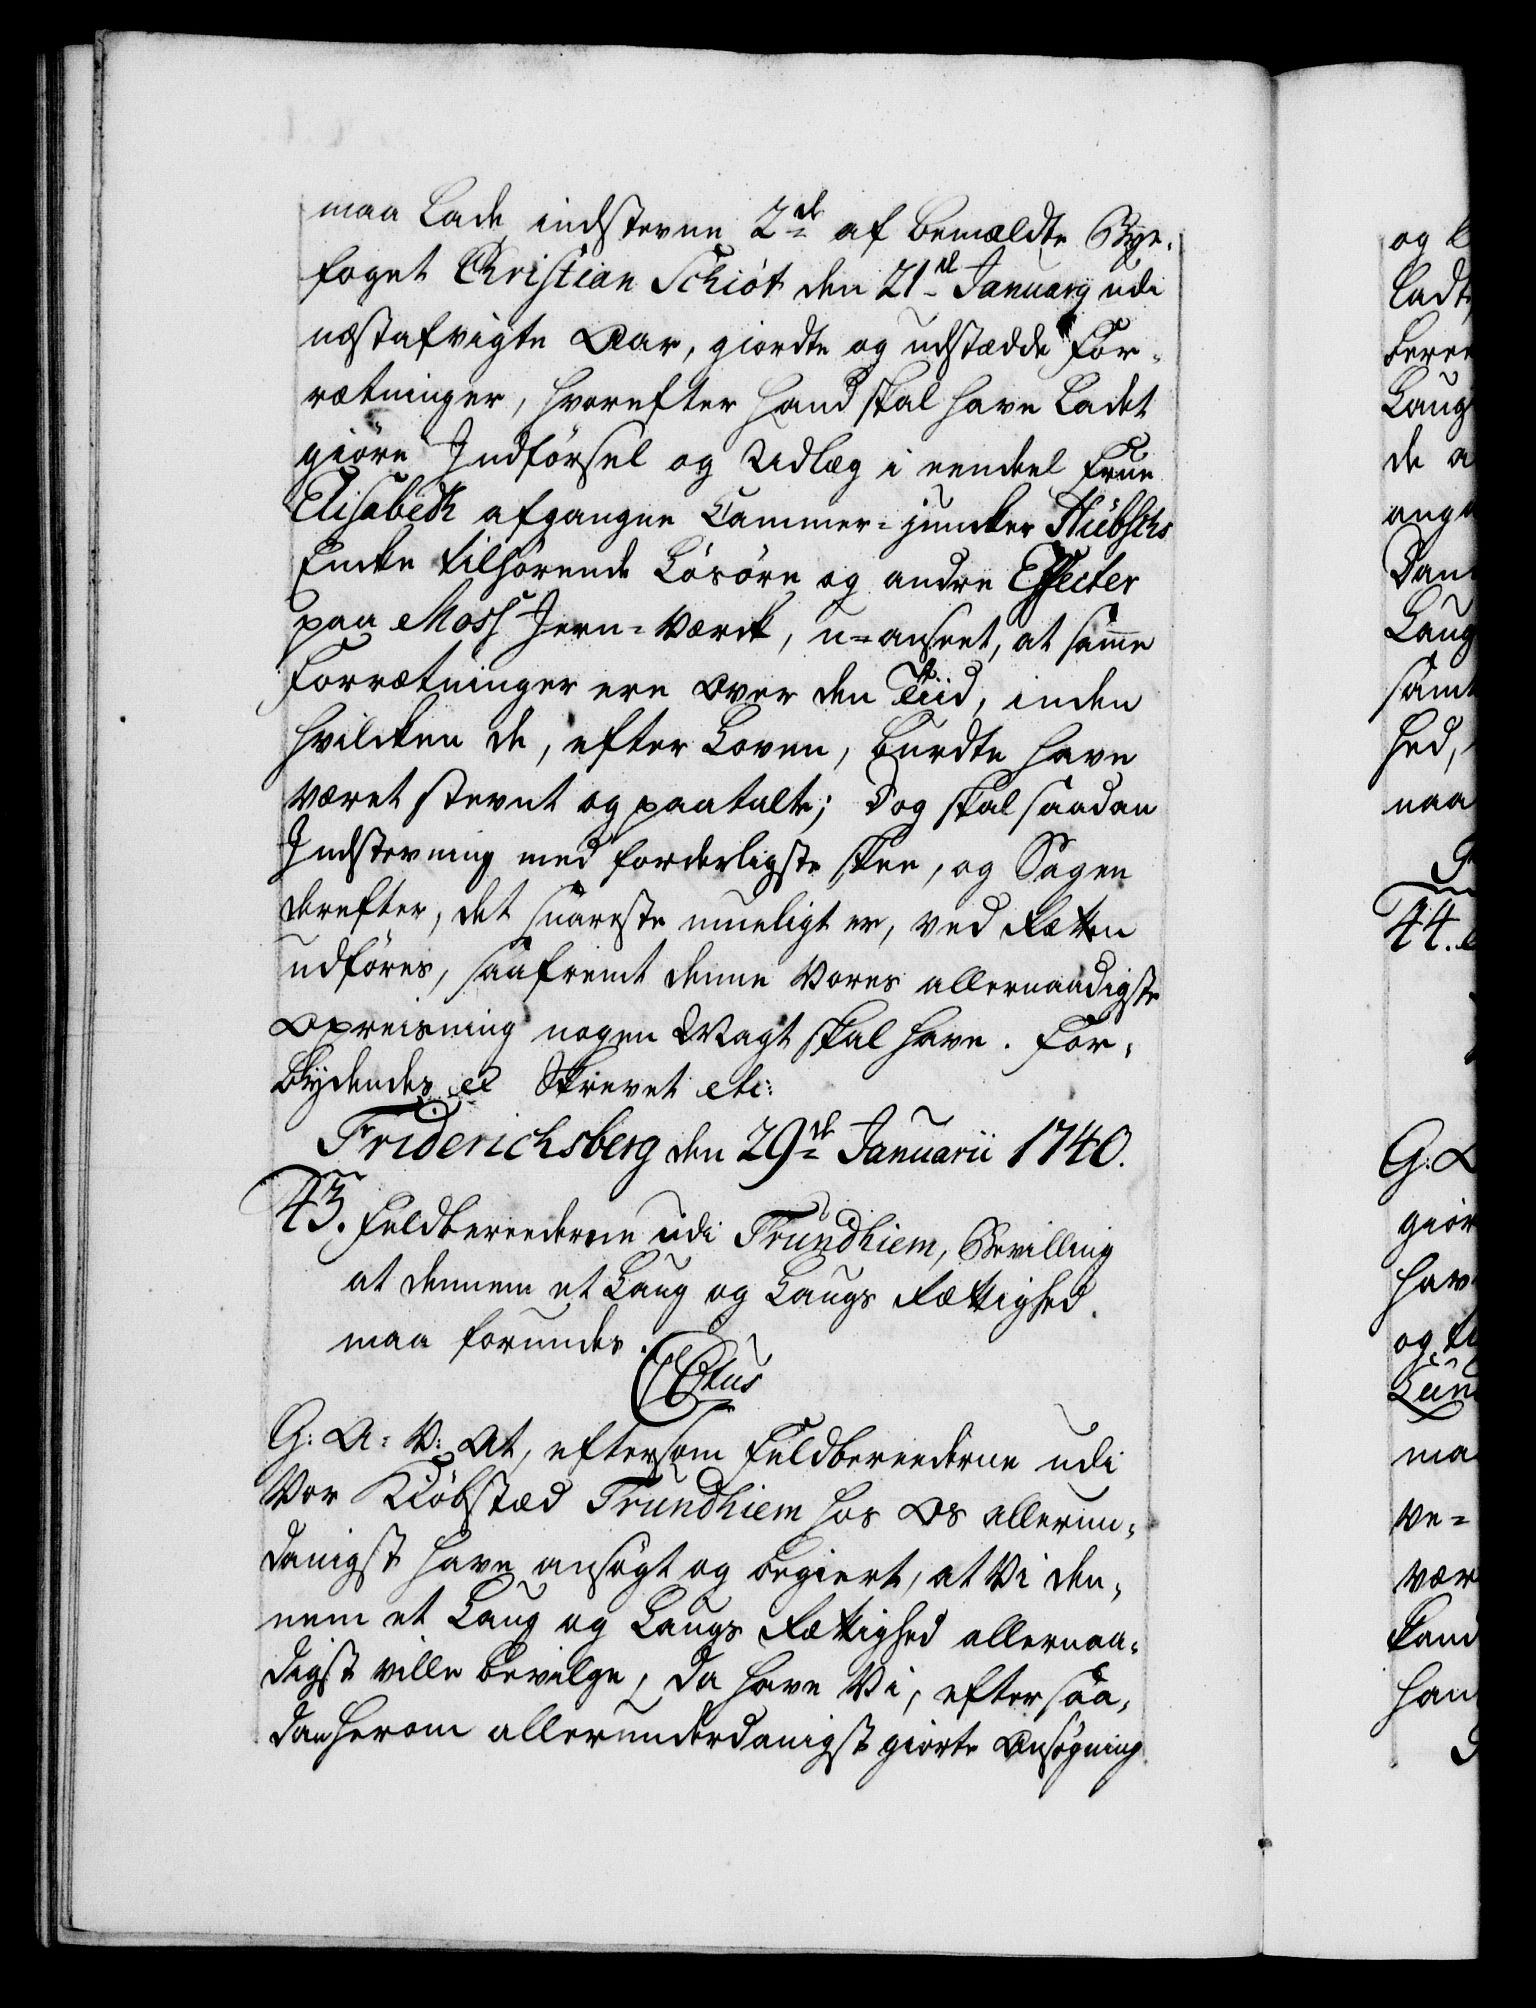 maa lade indstevne 2de af bemældte Bye-
foget Christian Schiöt den 21de January udi
næstafvigte Aar, giordte og udstædde For-
rætninger, hvorefter hand skal have ladet
giøre Indførsel og Udlæg i eendeel Frue
Elisabeth afgangne Cammer-juncker Hübschs
Encke tilhørende Løsøre og andre Effecter
paa Moss Jern-Værck, u-anseet, at samme
Forrætninger ere over den Tiid, inden
hvilcken de, efter Loven, burdte have
været stevnt og paatalte; Dog skal saadan
Indstevning med forderligste skee, og Sagen
derefter, det snareste mueligt er, ved Rætten
udføres, saafremt denne Vores allernaadigste
Opreisning nogen Magt skal have. For-
bydendes et Skrevet etc:
Friderichsberg den 29de Januarii 1740.
43. Feldbereederne udi Trundhiem, Bevilling
at dennem et Laug og Laugs Rættighed
maa forundes.
C6tus
G: A: V: At, eftersom Feldbereederne udi
Vor Kiöbstæd Trundhiem hos Os allerun-
danigst have ansøgt og begiert, at Vi den-
nem et Laug og Laugs Rættighed allernaa-
digst ville bevilge, da have Vi, efter saa-
dan herom allerunderdanigst giorte Ansøgning
og
ladt
bere
Laug
de a
ang
Dan
Laug
samt
hed,
naa
44.
G: A
giør
hav
og
ma
ve-
vær
han